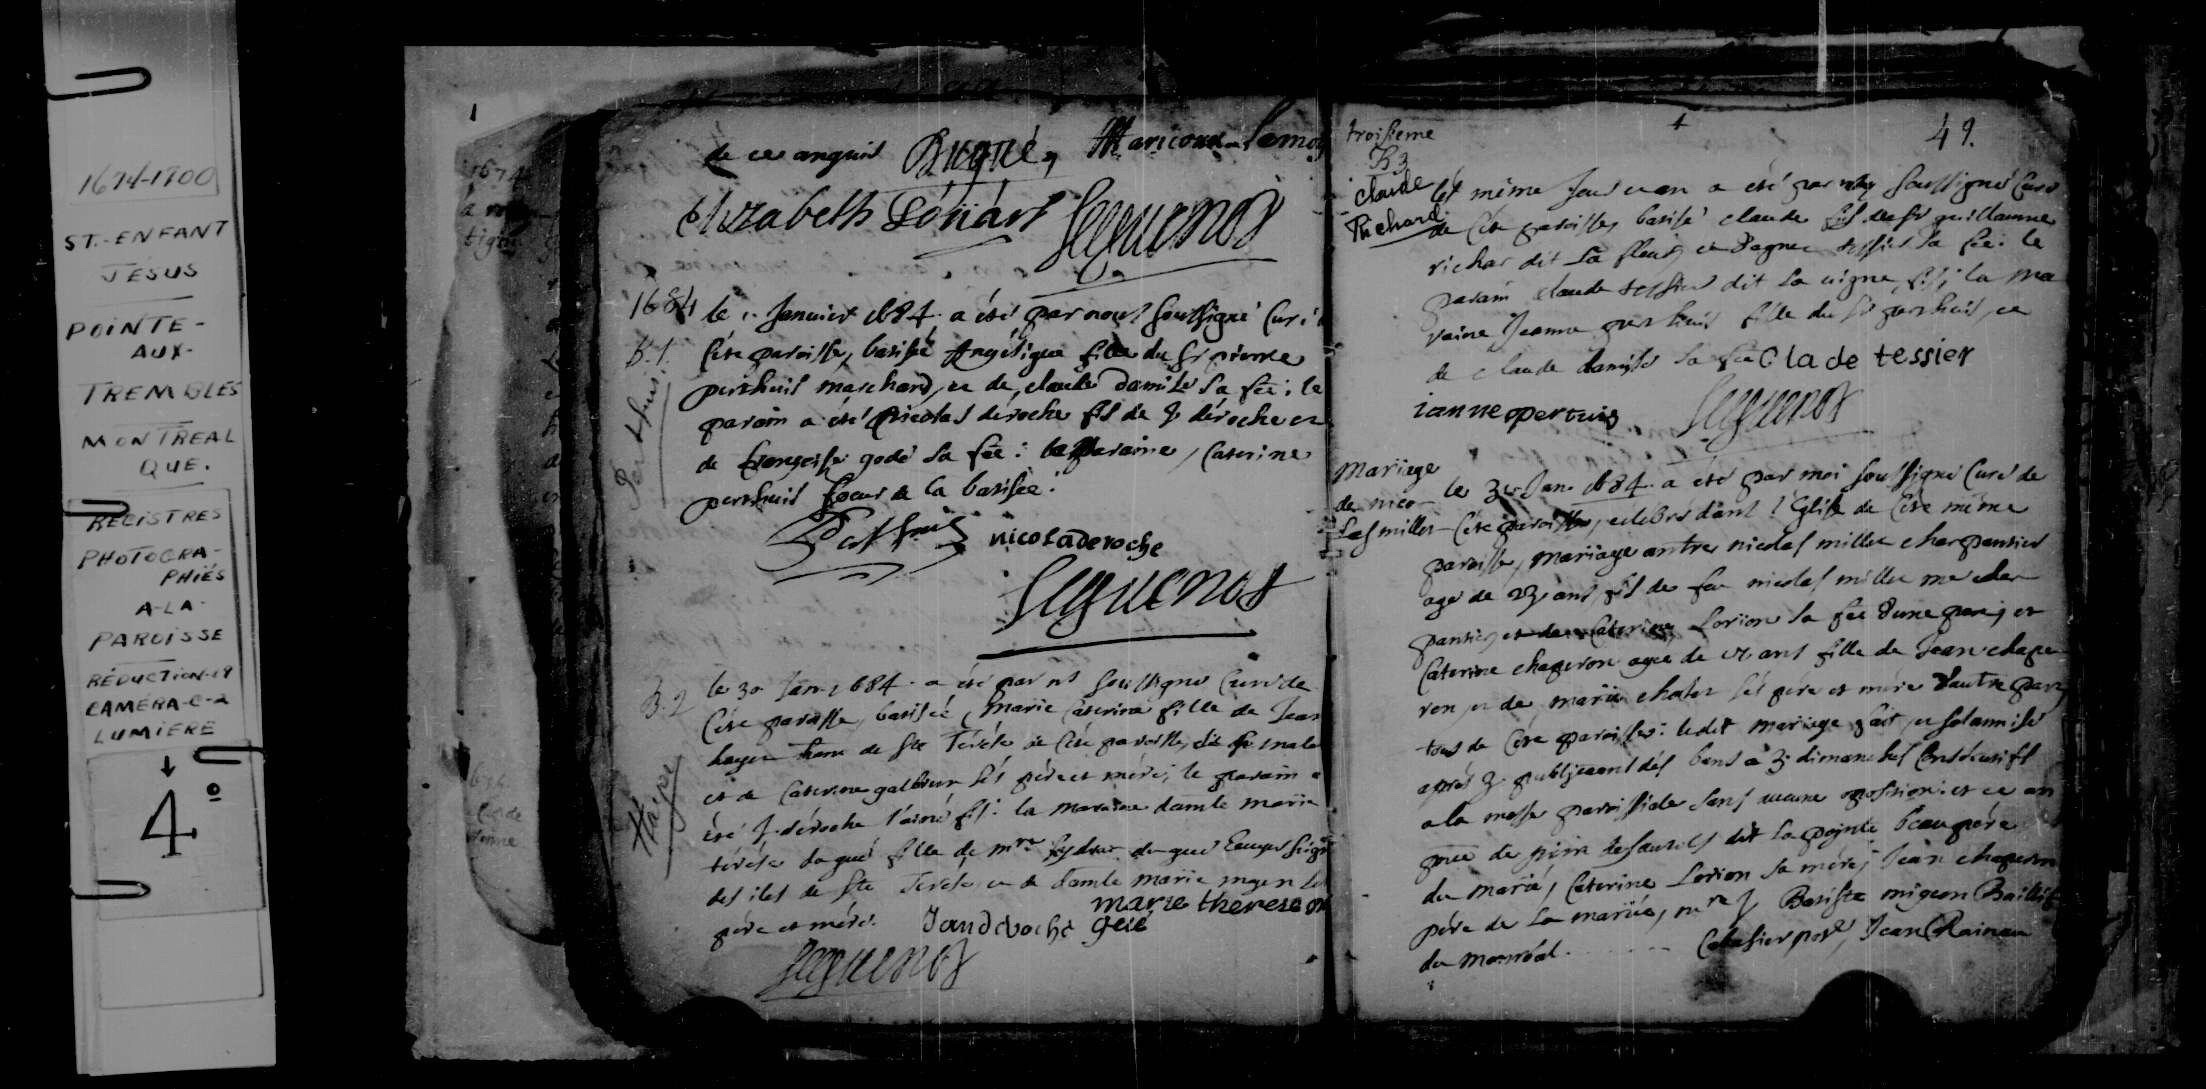 1674-1700
ST.-ENFANT
JÉSUS
POINTE-
AUX-
TREMBLES
MONTREAL
QUE.
REGISTRES
PHOTOGRA-
PHIÉS
A-LA-
PAROISSE
RÉDUCTION-19
CAMÉRA-C-2
LUMIÈRE
4º
1
de ce anquis Bugné,
Elizabeth Léonárt Seguenot
1684
le 1. Janvier 1684. a été par nous soussigné Curé
B. 1.
Cete paroisse, batisée Angélique fille du Sr pierre
perthuis marchand, et de claude Damise sa fẽe: le
parain a été Nicolas deroche fils de J déroche et
de françoise godé sa fẽe: la maraine, Caterine
perthuis soeur de la batisée.
Perthuis
nicoladeroche
Seguenot
B. 2
Häyet
le 30 Jan. 1684. a été par ns soussigné Curé de
Cete paroisse, batisée, Marie Caterine fille de Jean
hayet de Ste Térése de Cete paroisse, dit st malo
et de Caterine galbrun sés pére et mére; le parain a
été J. déroche l'ainé fils: la maraine damle marie
térése dagué fille de mre dague Ecuyer
des iles de Ste Terese, et de damle marie moyen sés
pére et mére.
Jandroche
marie therese
Seguenot
troisieme
B 3
claude
Richard
4
49.
Cet même Jour et an a été par moy soussigné Curé
de Cete paroisse, batisé claude fils de Sr guillaume
richar dit La fleur, et d'agnes tessier sa fẽe: le
parain claude tessier dit la vigne, fils; la ma
raine, Jeanne perthuis fille du Sr perthuis, et
de claude damise sa fẽe Clade tessier
ianne pertuis Seguenot
Mariage
de nico
las millet
le 3. Jan. 1684. a été par moi soussigné Curé de
Cete paroisse, celebré dans l'Eglise de Cete même
paroisse, mariage antre nicolas millet charpantier
agé de ans, fils de feu nicolas millet me char
pantier, et de Caterine Lorion sa fẽe d'une part, et
Caterine chaperon agée de ans fille de Jean chape
ron, et de marie sés pére et mére d'autre part,
tous de Cete paroisse: ledit mariage fait, et solannisé
aprés 3. publications dés bans à 3. dimanches Consécutifs
a la messe paroissiale sans aucune oposition: et ce an
de piere desautels dit lapointe beaupére
du marié, Caterine Lorion sa mére; Jean chaperon
pére de La mariée, mre J. Batiste migeon Baillif
du monréal. Jean Raineau